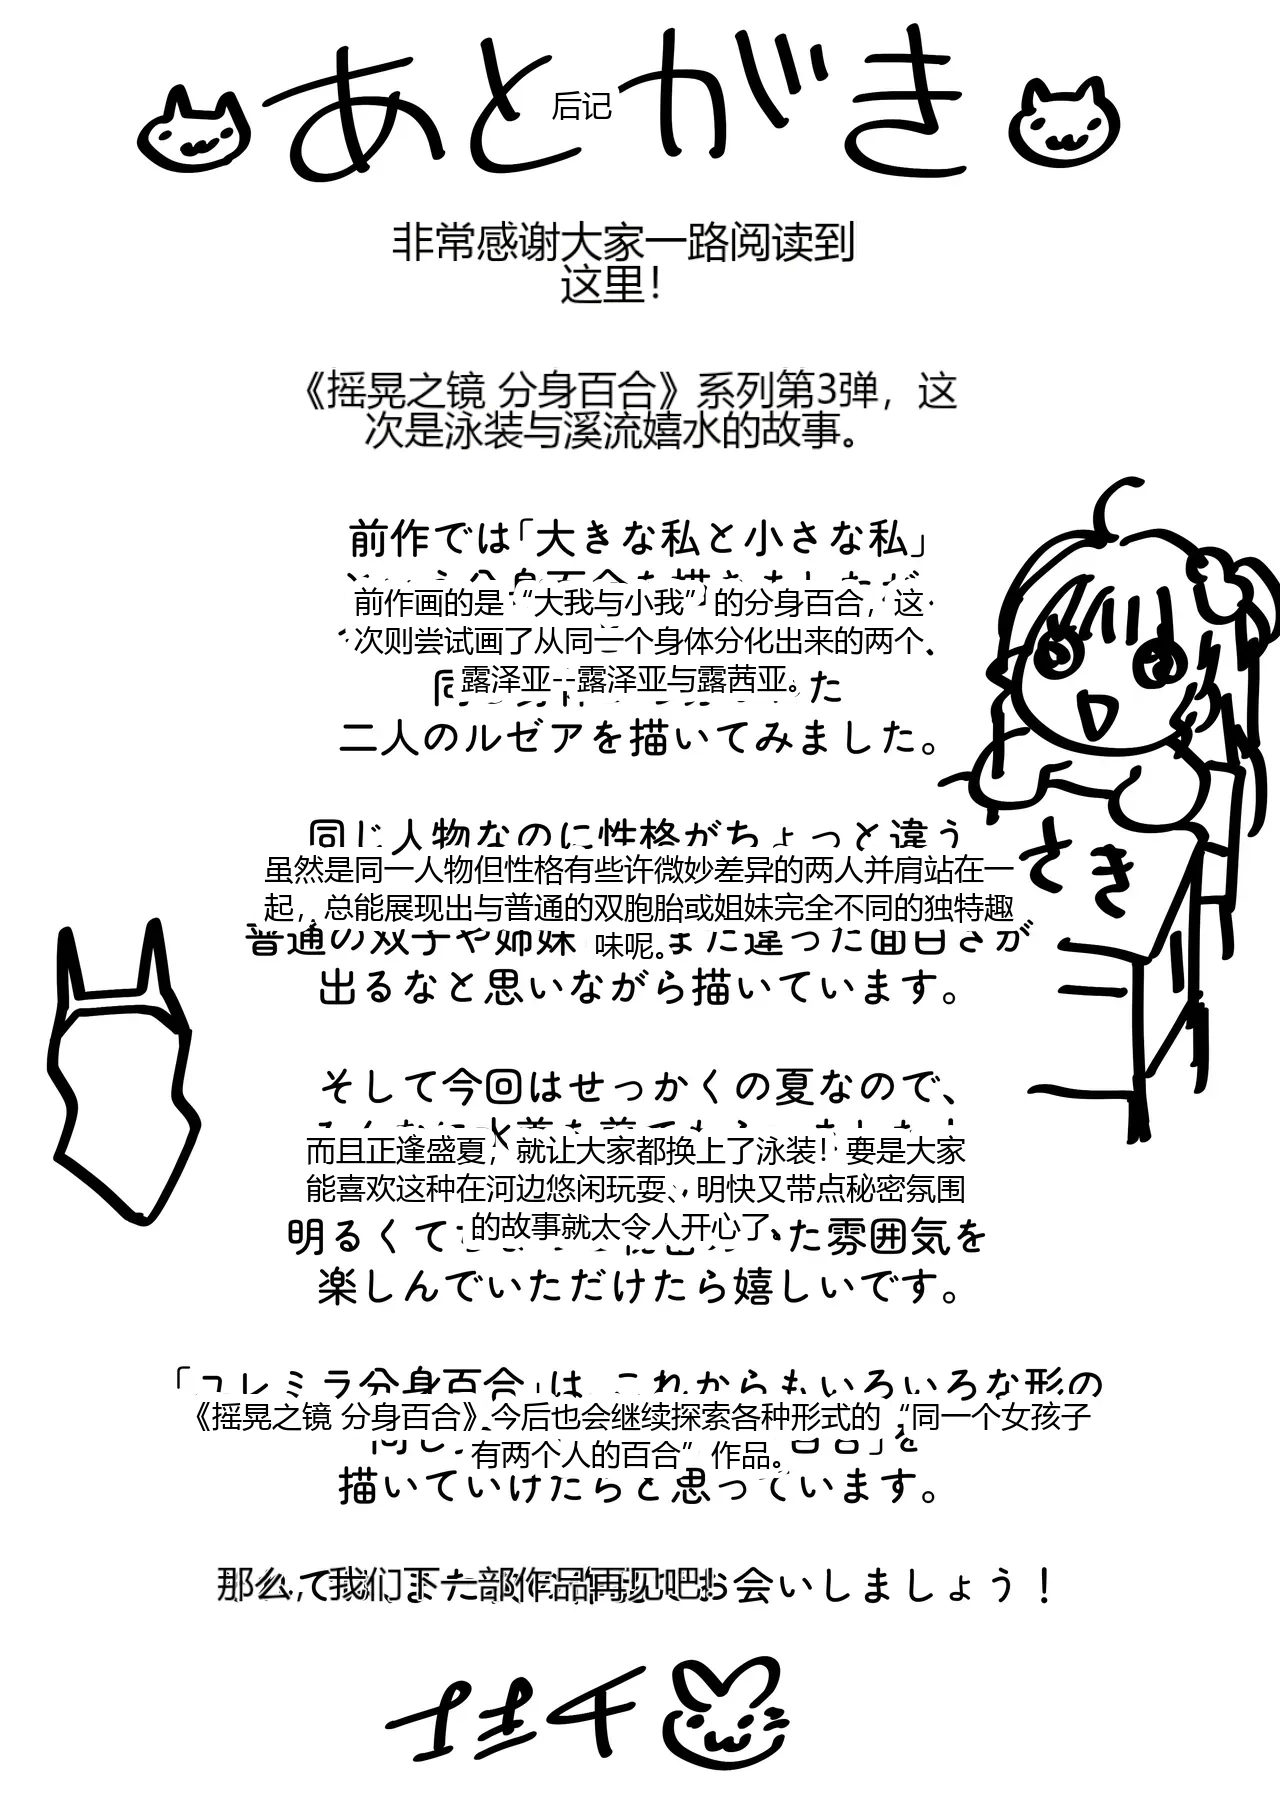 あとがき
后记
非常感谢大家一路阅读到
这里！
《摇晃之镜 分身百合》系列第3弹，这
次是泳装与溪流嬉水的故事。
前作では「大きな私と小さな私」
前作画的是“大我与小我”的分身百合，这
次则尝试画了从同一个身体分化出来的两个
露泽亚--露泽亚与露茜亚。
二人のルゼアを描いてみました。
同じ人物なのに性格がちょっと違う
虽然是同一人物但性格有些许微妙差异的两人并肩站在一
起，总能展现出与普通的双胞胎或姐妹完全不同的独特趣
味呢。
出るなと思いながら描いています。
そして今回はせっかくの夏なので、
而且正逢盛夏，就让大家都换上了泳装！要是大家
能喜欢这种在河边悠闲玩耍、明快又带点秘密氛围
的故事就太令人开心了
明るくて
た雰囲気を
楽しんでいただけたら嬉しいです。
「ユレミラ分身百合」は、これからもいろいろな形の
《摇晃之镜 分身百合》今后也会继续探索各种形式的“同一个女孩子
有两个人的百合”作品。
描いていけたらと思っています。
那么，我们下一部作品再见吧！
お会いしましょう！
さき